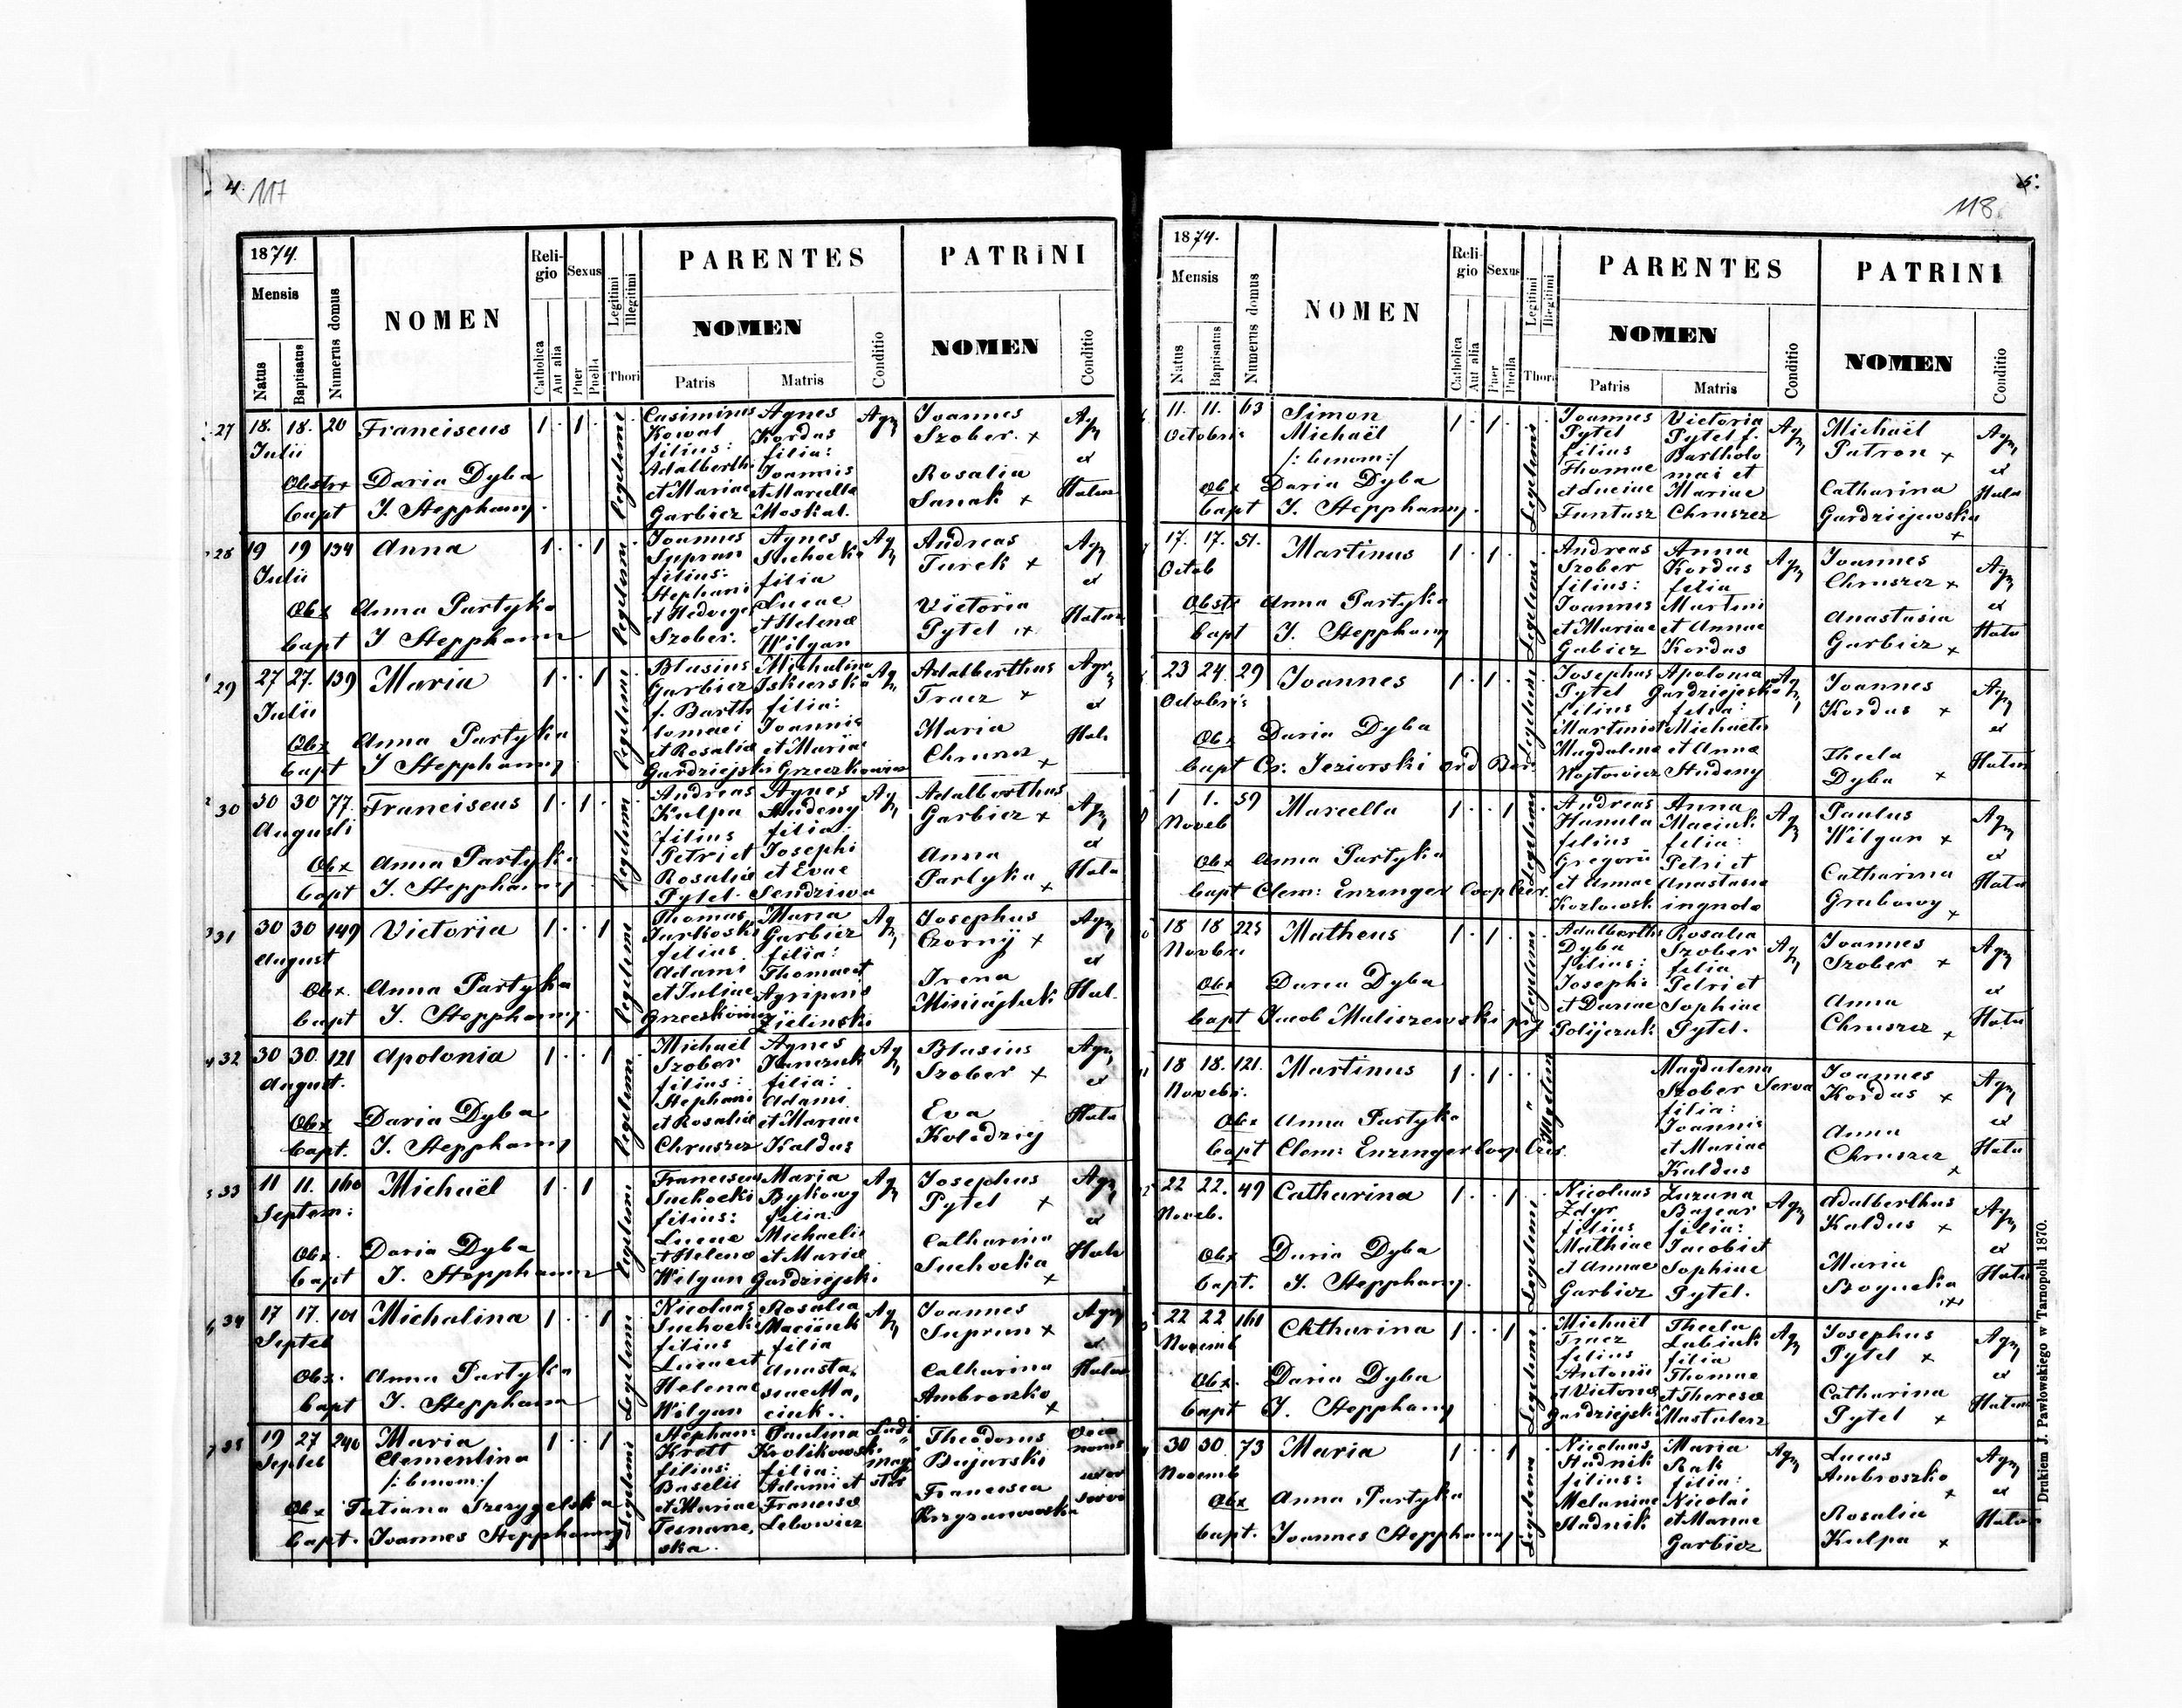 4. 117
1874.
Mensis
Natus
Baptisatus
Numerus domus
NOMEN
Religio
Catholica
Aut alia
Sexus
Puer
Puella
Legitimi
Illegitimi
Thori
PARENTES
NOMEN
Patris
Matris
Conditio
PATRINI
NOMEN
Conditio
27 18. 18. 20 Franciscus 1 1
Julii
Obstx Daria Dyba
Bapt J. Stepphany
legitimi
Casimirus
Kowal
filius:
Adalberti
et Mariae
Garbicz
Agnes
Kordas
filia:
Joannis
et Marcella
Moskal.
Agr
Joannes
Szober. x
Rosalia
Sanak x
Agr
et
28 19 19 134 Anna 1 1
Julii
Obx Anna Partyka
Bapt J Stepphany
legitimi
Joannes
Supran
filius:
Stephani
et Hedvige
Szober.
Agnes
Suchocka
filia
Lucae
et Helena
Wilgan
Agr
Andreas
Turek x
Victoria
Pytel x
Agr
et
29 27 27. 139 Maria 1 1
Julii
Obx Anna Partyka
Bapt J Stepphany
legitimi
Blasius
Garbicz
f. Barth
lomaei
et Rosalia
Gardziejski
Michalina
Iskierska
filia:
Joannis
et Maria
Grzeczkowicz
Adalberthus
Tracz x
Maria
x
Agr
et
30 30 30 77. Franciscus 1 1
Augusti
Obx Anna Partyka
Bapt J. Stepphany
legitimi
Andreas
Kulpa
filius
Petri et
Rosalia
Pytel
Agnes
Studeny
filia:
Josephi
et Evae
Sendziwa
Agr
Adalberthus
Garbicz x
Anna
Partyka x
Agr
et
31 30 30 149 Victoria 1 1
August
Obx. Anna Partyka
Bapt J. Stepphany
legitimi
Thomas
Jurkoski
filius
Adami
et Juliae
Maria
Garbicz
filia:
Thomae et
Agripine
Zielinski
Agr
Josephus
Czornij x
Irena
Agr
et
32 30 30. 121 Apolonia 1 1
August.
Obx Daria Dyba
Bapt. J. Stepphany
legitimi
Michael
Szober
filius:
Stephani
et Rosalia
Chruszcz
Agnes
Janczuk
filia:
Adami
et Mariae
Kaldus
Agr
Blasius
Szober x
Eva
Kolodziej
Agr
et
33 11 11. 160 Michaël 1 1
Septem:
Obx. Daria Dyba
Bapt J. Stepphany
legitimi
Franciscus
Suchocki
filius:
Lucae
et Helena
Wilgan
Maria
Bykowy
filia:
Michaelis
et Maria
Gardziejski
Agr
Josephus
Pytel x
Catharina
Suchocka x
Agr
et
34 17 17. 101 Michalina 1 1
Septeb
Obx. Anna Partyka
Bapt J. Stepphany
Legitimi
Nicolaus
Suchocki
filius
Lucae et
Helenae
Wilgan
Rosalia
Maciuek
filia
Anasta,
siae Ma,
ciuk..
Agr
Joannes
Supran x
Catharina
Ambroszko x
Agr
et
35 19 27 240 Maria 1 1
Septeb Clementina
/: binom:/
Obx Tatiana Przygelska
Bapt. Joannes Stepphany
Legitimi
Stephan:
Krett
filius:
Basilii
et Mariae
Ternawe,
ska.
Paulina
Krolikowski
filia:
Adami et
Francisca
Lebowicz
Ludi
magi
ster
Theodorus
Bujarski
Francisca
Krzyzanowska
118. 5.
1874.
Mensis
Natus
Baptisatus
Numerus domus
NOMEN
Religio
Catholica
Aut alia
Sexus
Puer
Puella
Legitimi
Illegitimi
Thori
PARENTES
NOMEN
Patris
Matris
Conditio
PATRINI
NOMEN
Conditio
11. 11. 63 Simon 1 1
Octobris Michaël
/: binom:/
Obx Daria Dyba
Bapt J. Stepphany.
Legitimi
Joannes
Pytel
filius
Thomae
et Luciae
Funtusz
Victoria
Pytel f.
Bartholo
maei et
Mariae
Chruszcz
Agr
Michaël
Patron x
Catharina
Gardziejewska x
Agr
et
17. 17. 51. Martinus 1 1
Octob
Obstx Anna Partyka
Bapt J. Stepphany
Legitimi
Andreas
Szober
filius:
Joannis
et Mariae
Gabicz
Anna
Kordas
filia
Martini
et Annae
Kordas
Agr
Joannes
Chruszcz x
Anastasia
Garbicz x
Agr
et
23 24. 29 Joannes 1 1
Octobris
Obx Daria Dyba
Bapt Cr. Jeziorski Ord Ber:
Legitimi
Josephus
Pytel
filius
Martini et
Magdalena
Wojtowicz
Apolonia
Gardziejeska
filia:
Michaelis
et Anna
Studeny
Agr
Joannes
Kordas x
Thecla
Dyba x
Agr
et
1 1. 59 Marcella 1 1
Noveb
Obx Anna Partyka
Bapt Clem: Enzinger Coop Czer.
Legitimi
Andreas
Hanula
filius
Gregorii
et Annae
Kozlowsk
Anna
Maciuk
filia:
Petri et
Anastasia
ingnota
Agr
Paulus
Wilgan x
Catharina
Grabowy x
Agr
et
18 18 225 Matheus 1 1
Novbr.
Obx Daria Dyba
Bapt Jacob Maliszewski
Legitimi
Adalberthi
Dyba
filius:
Josephi
et Dariae
Polijczuk
Rosalia
Szober
filia
Petri et
Sophiae
Pytel.
Agr
Joannes
Szober x
Anna
Chruszcz x
Agr
et
18 18. 121. Martinus 1 1
Novebr.
Obx Anna Partyka
Bapt Clem: Enzinger Coop Czer.
Illegitimi
Magdalena
Szober
filia:
Joannis
et Mariae
Kaldus
Serva
Joannes
Kordas x
Anna
Chruszcz x
Agr
et
22 22. 49 Catharina 1 1
Noveb.
Obx Daria Dyba
Bapt. J. Stepphany.
Legitimi
Nicolaus
Zdyr
filius
Mathiae
et Annae
Garbicz
Zuzana
Bajcar
filia:
Jacobi et
Sophiae
Pytel.
Agr
Adalberthus
Kaldus x
Maria
Agr
et
22 22 161 Chtharina 1 1
Novemb
Obx. Daria Dyba
Bapt J. Stepphany
Legitimi
Michaël
Tracz
filius
Antonii
et Victoria
Gardziejski
Thecla
Labiuk
filia
Thomae
et Theresa
Mastalerz
Agr
Josephus
Pytel x
Catharina
Pytel x
Agr
et
30 30. 73 Maria 1 1
Novemb
Obx Anna Partyka
Bapt. Joannes Stepphany
Legitima
Nicolaus
Stadnik
filius:
Melaniae
Stadnik
Maria
Rak
filia:
Nicolai
et Mariae
Garbicz
Agr
Lucas
Ambroszko x
Rosalia
Kulpa x
Agr
et
Drukiem J. Pawłowskiego w Tarnopolu 1870.